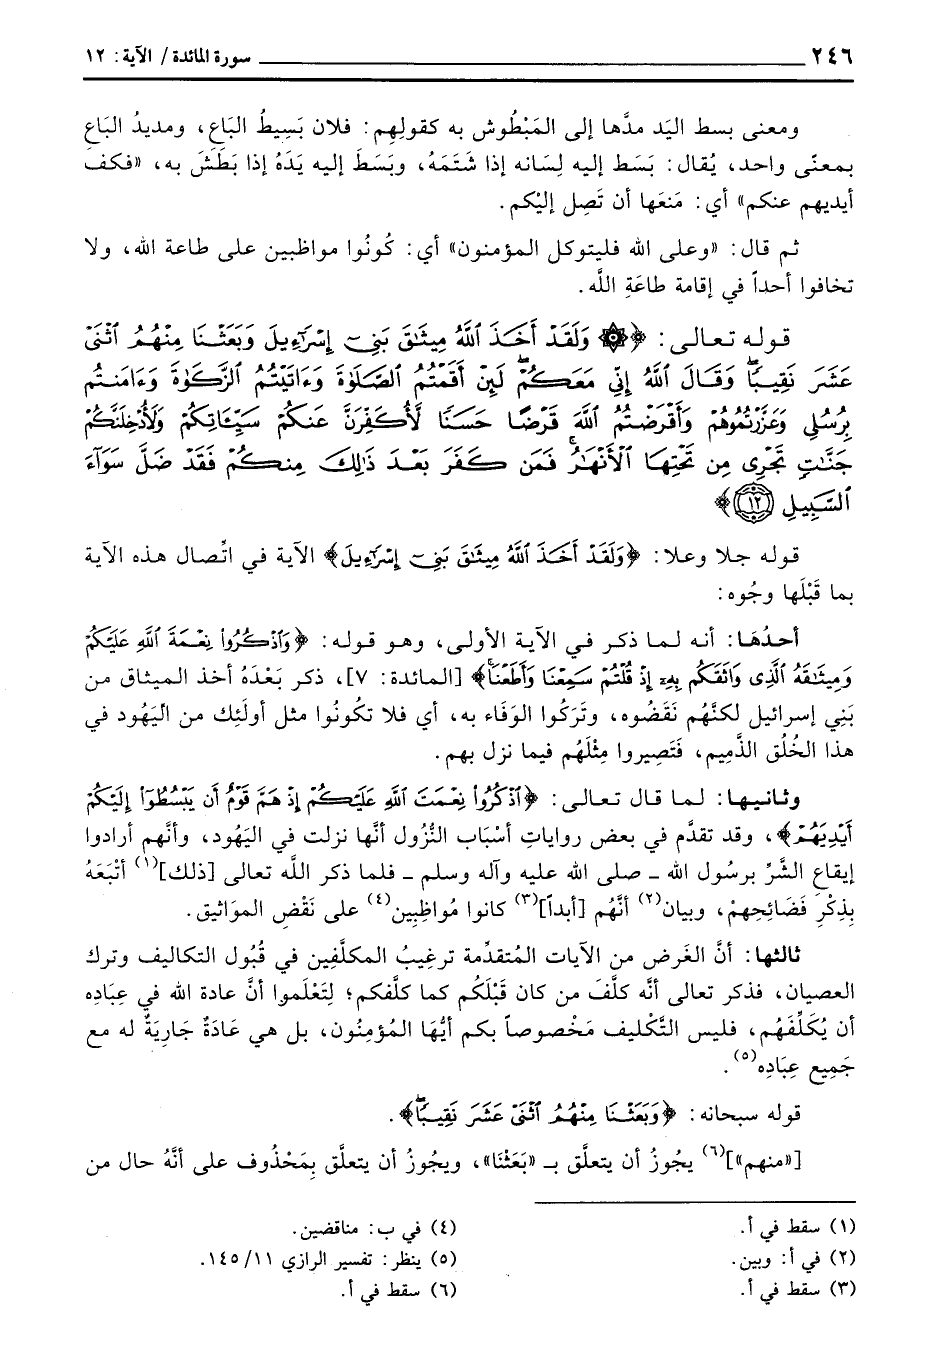 ٢٤٦ سورة المائدة / الآية: ١٢
ومعنى بسط اليَد مدَّها إلى المَبْطُوش به كقولِهِم: فلان بَسِيطُ البَاع، ومديدُ البَاعِ
بمعنًى واحد، يُقال: بَسَط إليه لِسَانه إذا شَتَمَهُ، وبَسَطَ إليه يَدَهُ إذا بَطَشَ به، «فكف
أيديهم عنكم» أي: مَنَعَها أن تَصِل إليْكم.
ثم قال: «وعلى الله فليتوكل المؤمنون» أي: كُونُوا مواظبين على طاعة الله، ولا
تخافوا أحداً في إقامة طاعَةِ اللَّه.
قوله تعالى: ﴿۞ وَلَقَدْ أَخَذَ ٱللَّهُ مِيثَٰقَ بَنِىٓ إِسْرَٰٓءِيلَ وَبَعَثْنَا مِنْهُمُ ٱثْنَىْ
عَشَرَ نَقِيبًاۖ وَقَالَ ٱللَّهُ إِنِّى مَعَكُمْۖ لَئِنْ أَقَمْتُمُ ٱلصَّلَوٰةَ وَءَاتَيْتُمُ ٱلزَّكَوٰةَ وَءَامَنتُم
بِرُسُلِى وَعَزَّرْتُمُوهُمْ وَأَقْرَضْتُمُ ٱللَّهَ قَرْضًا حَسَنًا لَّأُكَفِّرَنَّ عَنكُمْ سَيِّـَٔاتِكُمْ وَلَأُدْخِلَنَّكُمْ
جَنَّٰتٍ تَجْرِى مِن تَحْتِهَا ٱلْأَنْهَٰرُۚ فَمَن كَفَرَ بَعْدَ ذَٰلِكَ مِنكُمْ فَقَدْ ضَلَّ سَوَآءَ
ٱلسَّبِيلِ ١٢﴾
قوله جلا وعلا: ﴿وَلَقَدْ أَخَذَ ٱللَّهُ مِيثَٰقَ بَنِىٓ إِسْرَٰٓءِيلَ﴾ الآية في اتِّصال هذه الآية
بما قَبْلَها وجُوه:
أحدُهَا: أنه لما ذكر في الآية الأولى، وهو قوله: ﴿وَٱذْكُرُوا۟ نِعْمَةَ ٱللَّهِ عَلَيْكُمْ
وَمِيثَٰقَهُ ٱلَّذِى وَاثَقَكُم بِهِۦٓ إِذْ قُلْتُمْ سَمِعْنَا وَأَطَعْنَاۖ﴾ [المائدة: ٧]، ذكر بَعْدَهُ أخذ الميثاق من
بَنِي إسرائيل لكنَّهُم نَقَضُوه، وتَرَكُوا الوَفَاء به، أي فلا تكُونُوا مثل أولَئِك من اليَهُود في
هذا الخُلُق الذَّمِيم، فَتَصِيروا مِثْلَهُم فيما نزل بهم.
وثانيها: لما قال تعالى: ﴿ٱذْكُرُوا۟ نِعْمَتَ ٱللَّهِ عَلَيْكُمْ إِذْ هَمَّ قَوْمٌ أَن يَبْسُطُوٓا۟ إِلَيْكُمْ
أَيْدِيَهُمْ﴾، وقد تقدَّم في بعض روايات أسْبَاب النُّزُول أنَّها نزلت في اليَهُود، وأنَّهم أرادوا
إيقاع الشَّرِّ برسُول الله ـ صلى الله عليه وآله وسلم ـ فلما ذكر اللَّه تعالى [ذلك]⁽١⁾ أتْبَعَهُ
بِذِكْرِ فَضَائِحِهِمْ، وبيان⁽٢⁾ أنَّهُم [أبداً]⁽٣⁾ كانوا مُواظِبِين⁽٤⁾ على نَقْضِ الموَاثيق.
ثالثها: أنَّ الغَرض من الآيات المُتقدِّمة ترغِيبُ المكلَّفِين في قُبُول التكاليف وترك
العصيان، فذكر تعالى أنَّه كلَّفَ من كان قَبْلَكُم كما كلَّفكم؛ لِتَعْلَموا أنَّ عادة الله في عِبَادِه
أن يُكَلِّفَهُم، فليس التَّكْليف مَخْصوصاً بكم أيُّهَا المُؤمِنُون، بل هي عَادَةٌ جَارِيَةٌ له مع
جَمِيع عِبَادِه⁽٥⁾.
قوله سبحانه: ﴿وَبَعَثْنَا مِنْهُمُ ٱثْنَىْ عَشَرَ نَقِيبًاۖ﴾.
[«منهم»]⁽٦⁾ يجُوزُ أن يتعلَّق بـ «بَعَثْنَا»، ويجُوزُ أن يتعلَّق بِمَحْذُوف على أنَّهُ حال من
(١) سقط في أ.
(٢) في أ: وبين.
(٣) سقط في أ.
(٤) في ب: مناقضين.
(٥) ينظر: تفسير الرازي ١٤٥/١١.
(٦) سقط في أ.